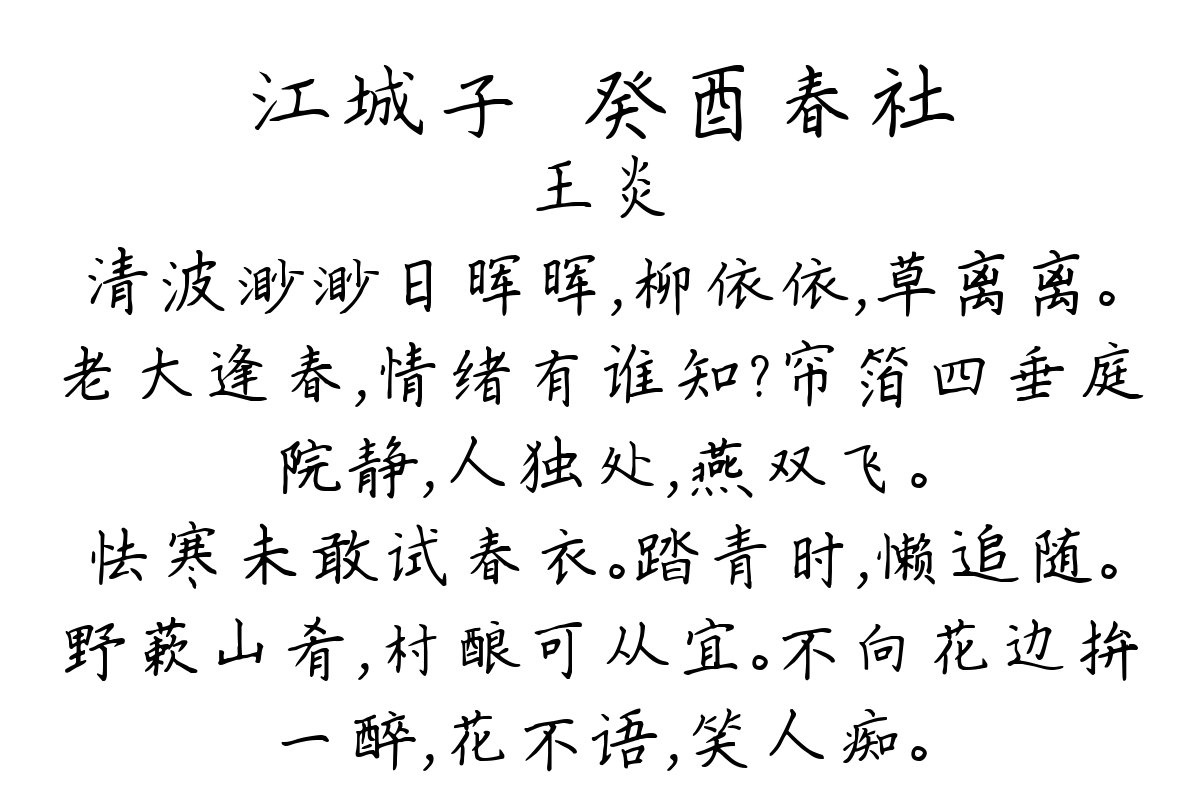 江城子 癸酉春社
王炎
清波渺渺日晖晖,柳依依,草离离。
老大逢春,情绪有谁知?帘箔四垂庭
院静,人独处,燕双飞。
怯寒未敢试春衣。踏青时,懒追随。
野蔌山肴,村酿可从宜。不向花边拚
一醉,花不语,笑人痴。